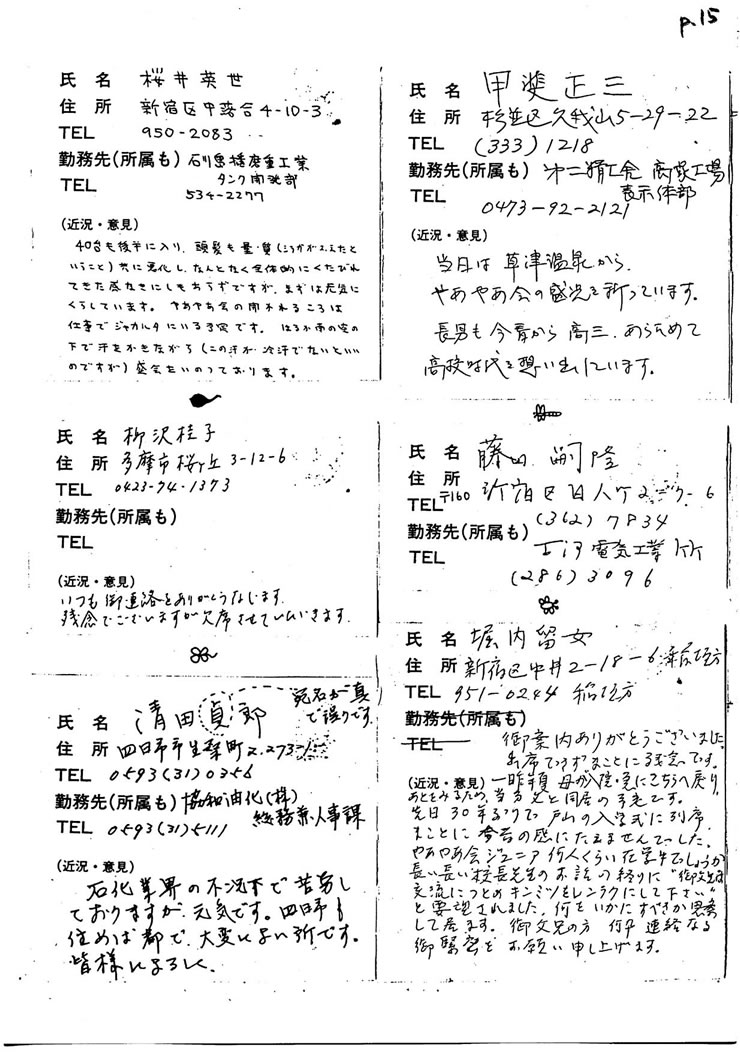 p.15
氏名 桜井英世
住所 新宿区中落合4-10-3
TEL 950-2083
勤務先(所属も) 石川島播磨重工業
タンク開発部
TEL 534-2277
(近況・意見)
40台も後半に入り、頭髪も量・質(しらががふえたと
いうこと)共に悪化し、なんとなく全体的にくたびれ
てきた感なきにしもあらずですが、まずは元気に
くらしています。やあやあ会の開かれるころは
仕事でジャカルタにいる予定です。はるか南の空の
下で汗をかきながら(この汗が冷汗でないといい
のですが)盛会をいのっております。
氏名 甲斐正三
住所 杉並区久我山5-29-22
TEL (333)1218
勤務先(所属も) 第二精工舎 高塚工場
表示体部
TEL 0473-92-2121
(近況・意見)
当日は草津温泉から、
やあやあ会の盛況を祈っています。
長男も今春から高三、あらためて
高校時代を想い出しています。
氏名 柳沢桂子
住所 多摩市桜ヶ丘3-12-6
TEL 0423-74-1373
勤務先(所属も)
TEL
(近況・意見)
いつも御連絡をありがとうございます。
残念でございますが欠席させていただきます。
氏名 藤田嗣隆
住所
TEL 〒160 新宿区百人町2-7-6
(362)7834
勤務先(所属も)
TEL 電気工業KK
(286)3096
氏名 清田貞郎
宛名が真
で誤りです
住所 四日市市生桑町2,273-1
TEL 0593(31)0356
勤務先(所属も) 協和油化(株)
総務部人事課
TEL 0593(31)5111
(近況・意見)
石化業界の不況下で苦労し
ておりますが、元気です。四日市も
住めば都で、大変によい所です。
皆様によろしく。
氏名 堀内留女
住所 新宿区中井2-18-6 稲垣方
TEL 951-0244 稲垣方
勤務先(所属も)
TEL
御案内ありがとうございました。
出席できずまことに残念です。
(近況・意見) 一昨年頃 母が 急にこちらへ戻り
あとをみるため、当方父と同居の予定です。
先日30年ぶりで戸山の入学式に列席
まことに今昔の感にたえませんでした。
やあやあ会ジュニア何人くらい在学中でしょうか
長い長い校長先生のお話の終りに"御父兄は
交流につとめキンミツなレンラクにして下さい"
と要望されました。何をいかにすべきか思案
して居ます。御父兄の方 何卒連絡なる
御緊密をお願い申し上げます。